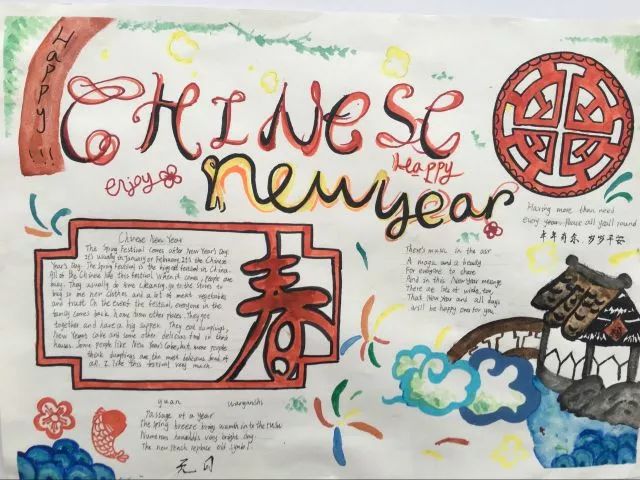 Happy!!!
CHINESE
enjoy
Happy
new year
Having more than need
every year. Peace all you'll round
年年有余，岁岁平安
Chinese New Year
The Spring Festival comes after New Year's Day.
It's usually in January or February. It's the Chinese
Year's Day. The Spring Festival is the biggest festival in China.
All of the Chinese like this festival. When it comes, people are
busy. They usually do some cleaning, go to the stores to
big so me new clothes and a lot of meat vegetables
and fruit. On the eve of the festival, everyone in the
family comes back home from other places. They get
together and have a big supper. They eat dumplings,
New Year's cake and some other delicious food in their
houses. Some people like New Year's cake, but more people
think dumplings are the most delicious food of
all. I like this festival very much.
春
There's music in the air
A magic and a beauty
For everyone to share
And in this New Year message
There are lots of wishes too,
That New Year and all days
will be happy ones for you
yuan wanganshi
Passage of a year
The spring breeze brings warmth in to the
Numerous households very bright day.
The new peach replace old symbol.
元日